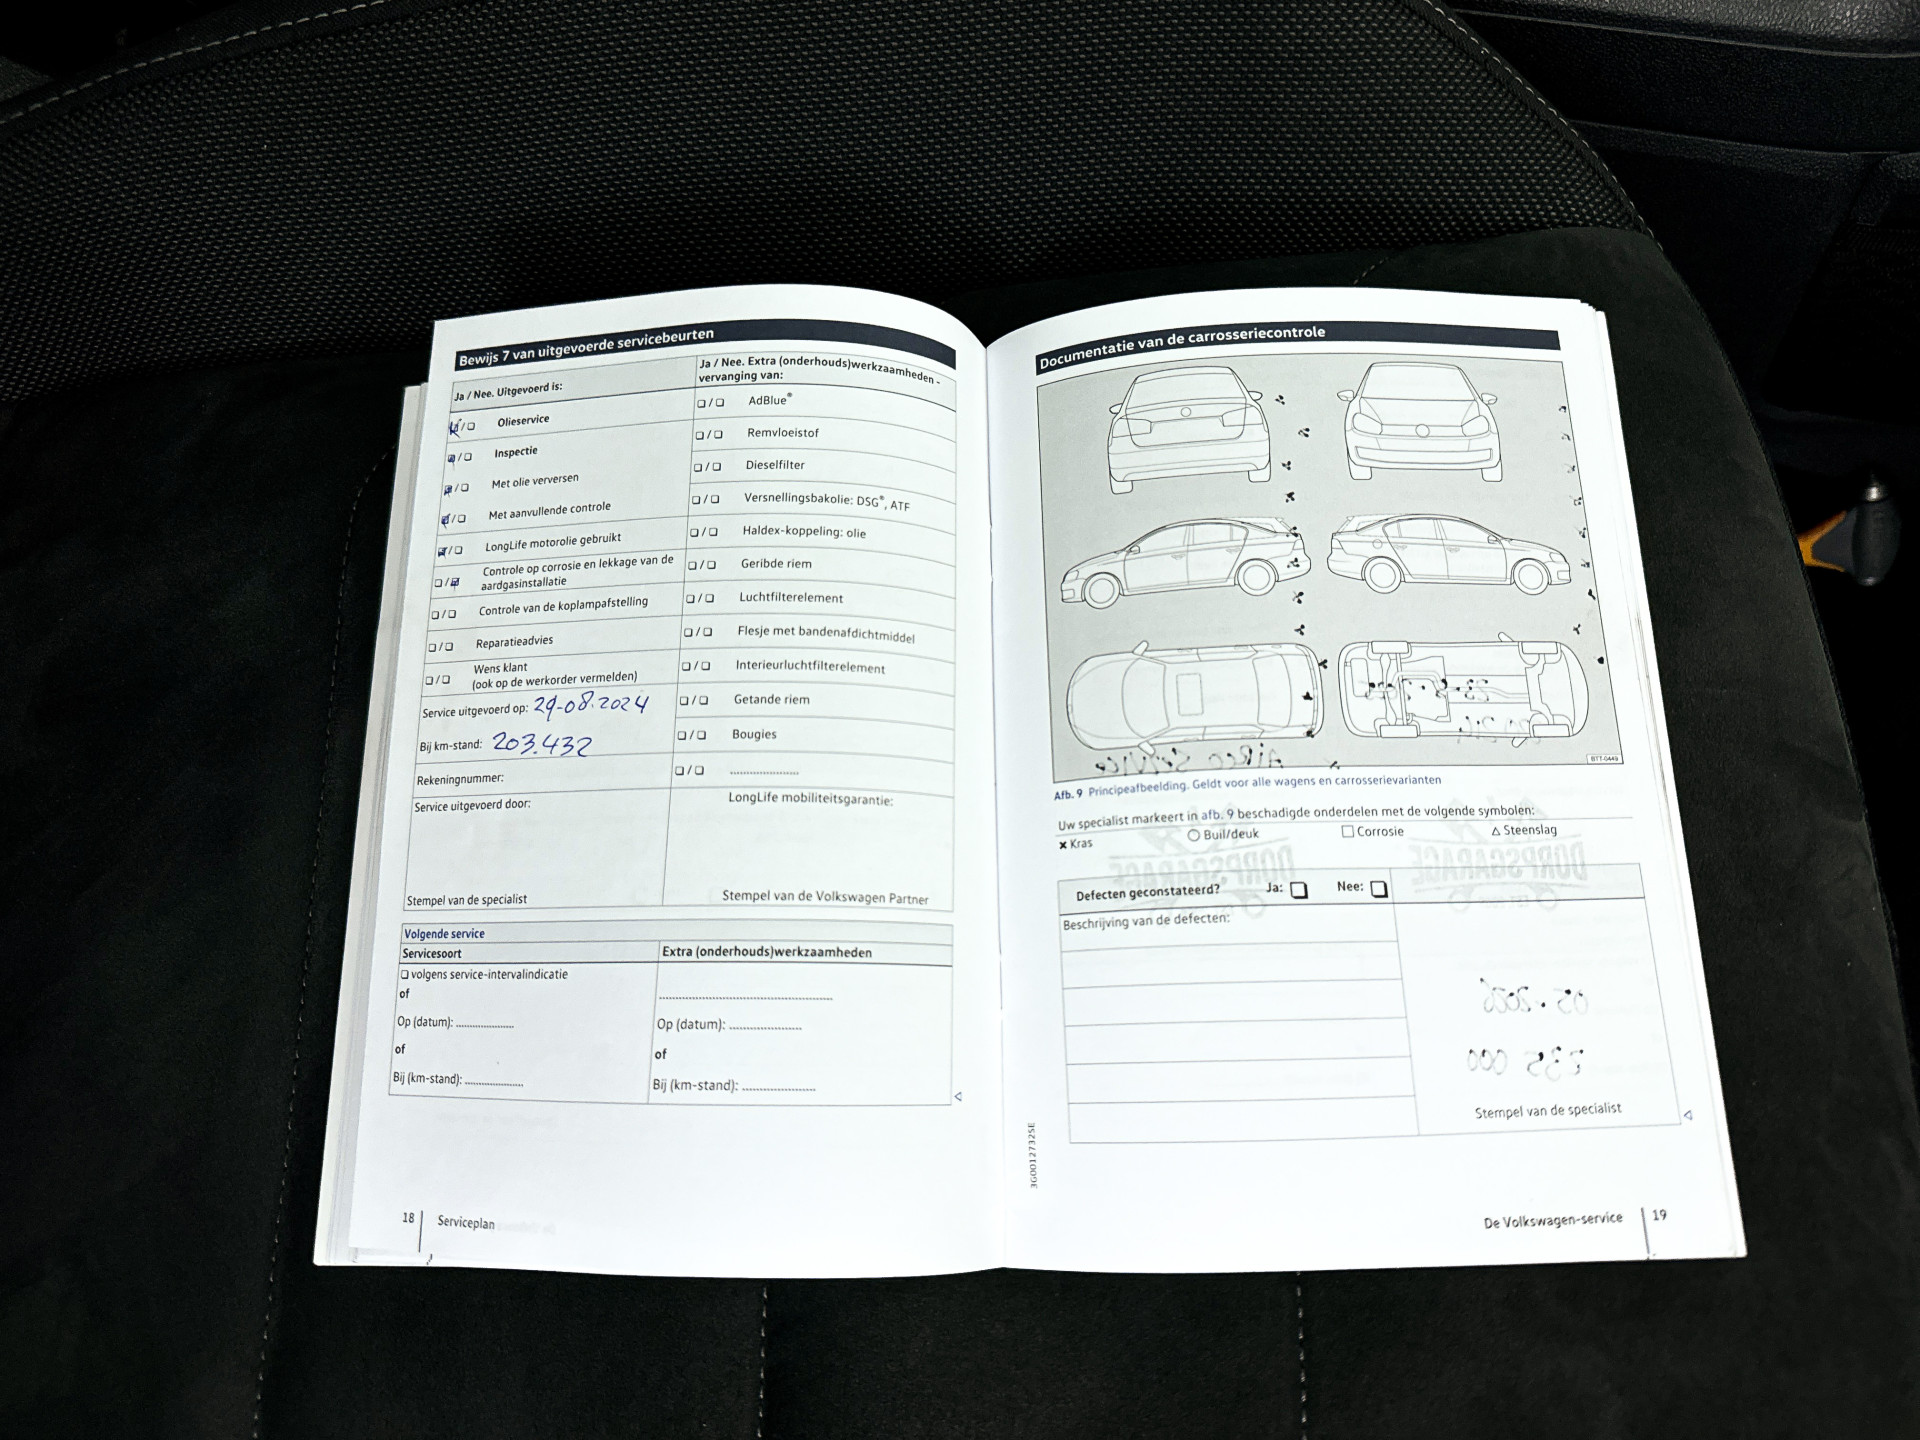 Bewijs 7 van uitgevoerde servicebeurten
Ja / Nee. Uitgevoerd is:
Olieservice
Inspectie
Met olie verversen
Met aanvullende controle
LongLife motorolie gebruikt
Controle op corrosie en lekkage van de
aardgasinstallatie
Controle van de koplampafstelling
Reparatieadvies
Wens klant
(ook op de werkorder vermelden)
Service uitgevoerd op: 29-08-2024
Bij km-stand: 203.432
Rekeningnummer:
Service uitgevoerd door:
Stempel van de specialist
Ja / Nee. Extra (onderhouds)werkzaamheden -
vervanging van:
AdBlue®
Remvloeistof
Dieselfilter
Versnellingsbakolie: DSG®, ATF
Haldex-koppeling: olie
Geribde riem
Luchtfilterelement
Flesje met bandenafdichtmiddel
Interieurluchtfilterelement
Getande riem
Bougies
LongLife mobiliteitsgarantie:
Stempel van de Volkswagen Partner
Volgende service
Servicesoort
volgens service-intervalindicatie
of
Op (datum):
of
Bij (km-stand):
Extra (onderhouds)werkzaamheden
Op (datum):
of
Bij (km-stand):
18 Serviceplan
Documentatie van de carrosseriecontrole
BTT-0449
Afb. 9 Principeafbeelding. Geldt voor alle wagens en carrosserievarianten
Uw specialist markeert in afb. 9 beschadigde onderdelen met de volgende symbolen:
Kras
Buil/deuk
Corrosie
Steenslag
Defecten geconstateerd? Ja: Nee:
Beschrijving van de defecten:
Stempel van de specialist
3G0012732SE
De Volkswagen-service 19